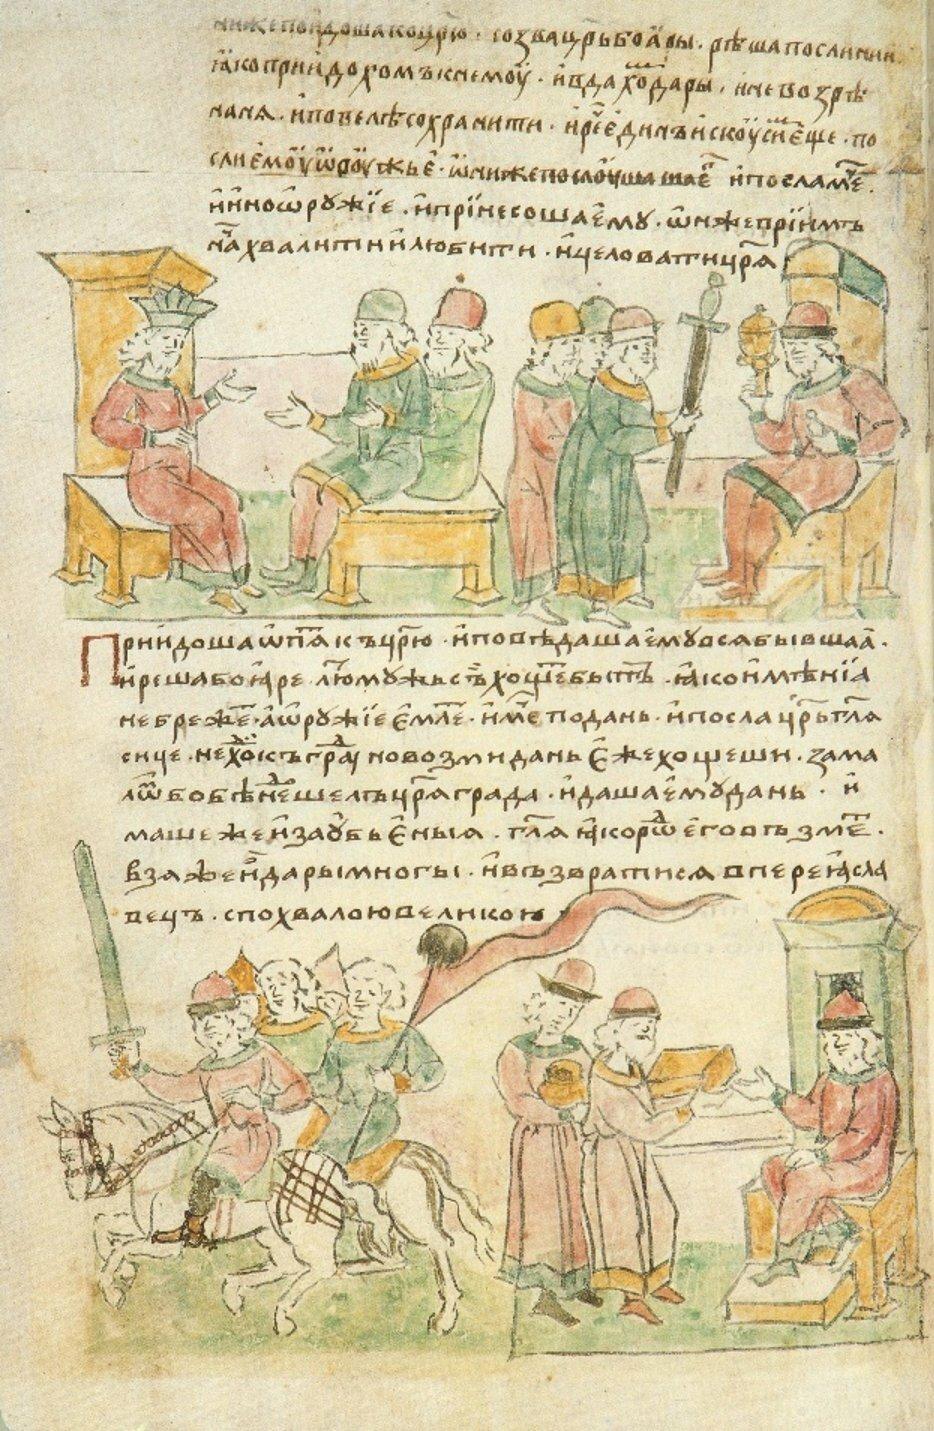 ѡниже поидоша ко цр҃ю · созва цр҃ь боѧры · рѣша посланнии
ꙗко приидохомъ к немоу · и вдахом дары · и не возрѣ
на нѧ · и повелѣ сохранити · и рече единъ искоуси еще · по
сли ємоу ѡроужьє · ѡни же послоушаша єго и послаша ємоу мечь
и ино ѡружїе · и прїнесоша ємоу · ѡн же прїимъ
нача хвалити и любити · и целовати цр҃ѧ
Приидоша ѡпѧть къ цр҃ю · и поведаша ємоу всѧ бывшаа ·
и реша боѧре · лютъ мужь сь хощеть быть · ꙗко имѣнїа
небрежеть · а ѡружїе ємлеть · имсѧ по дань · и посла цр҃ь гл҃ѧ
сице · не ходи къ граду · но возми дань єже хощеши · за ма
лѡ бо бѣ не шелъ цр҃ѧграда · и даша ємоу дань · и
маше же и за оубьєныѧ · гл҃ѧ ꙗко родъ єго възметь ·
взѧ же и дары многы · и възвратисѧ в переѧсла
вець · с похвалою великою